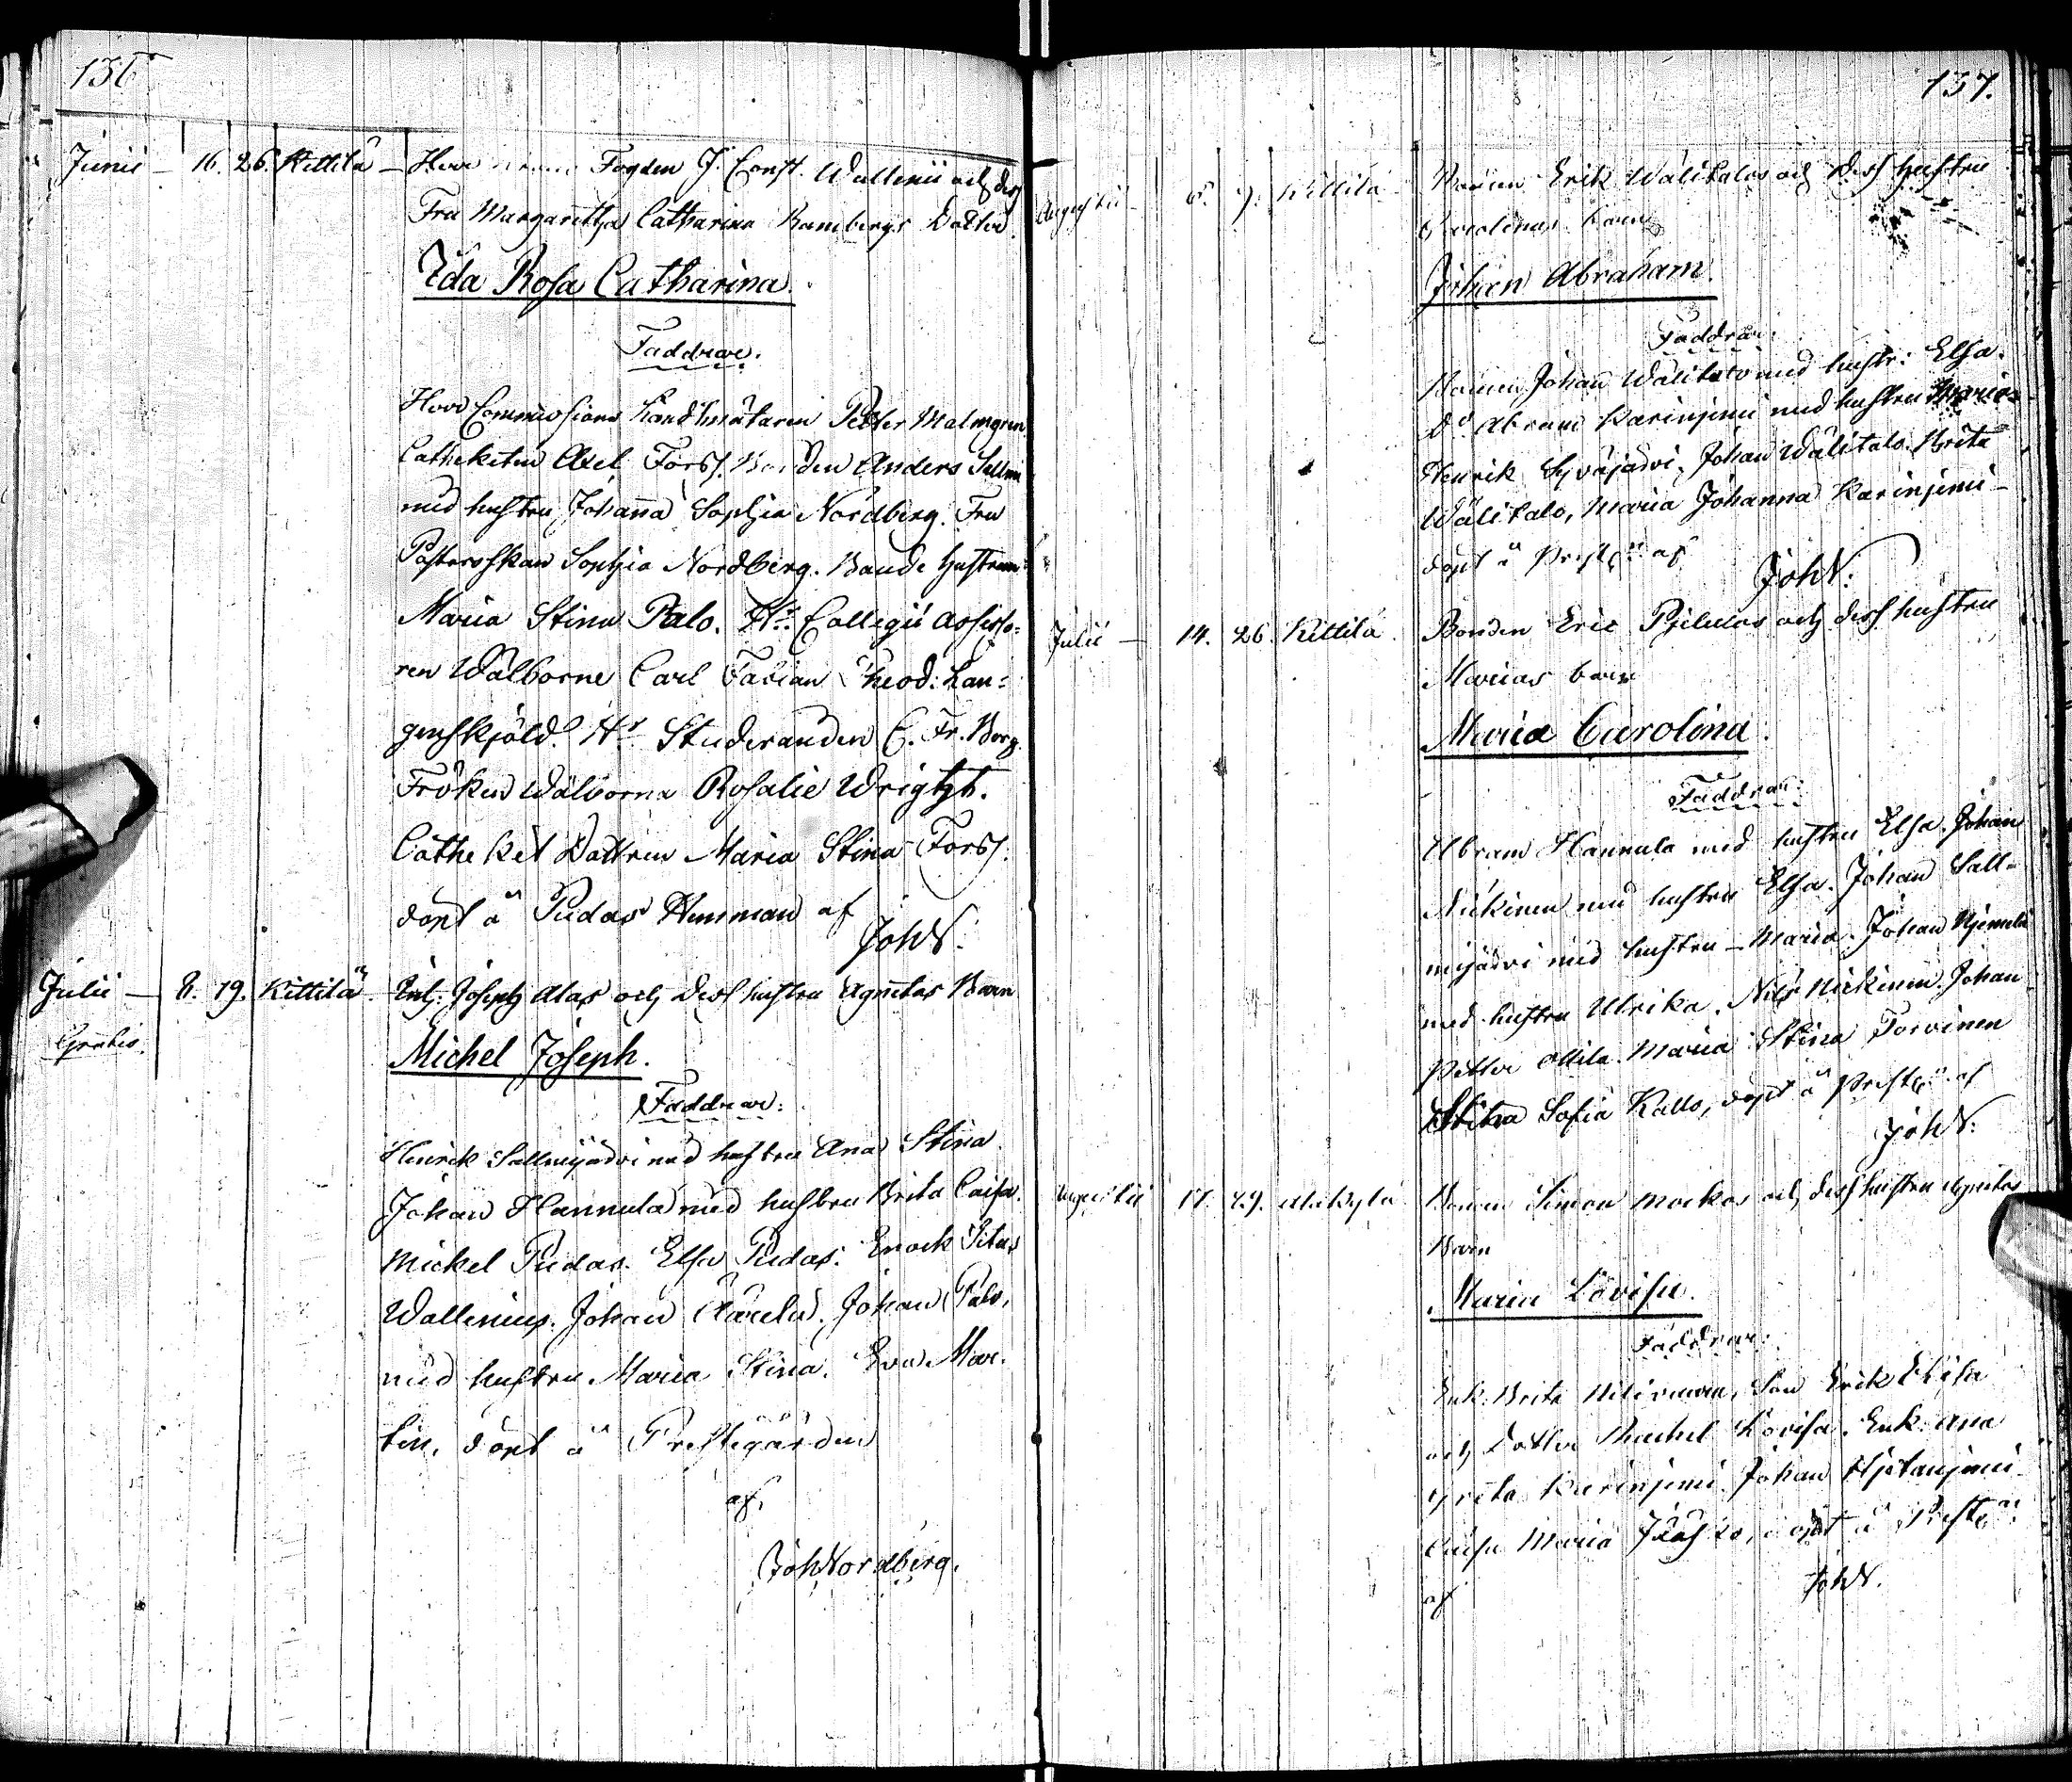 136
Junii — 16. 26. Kittilä — Herr Fogden J. Const. Wallenii och dess
Fru Margaretha Catharina Rambergs Dotter
Ida Rosa Catharina.
Faddrar.
Herr Commissions Landtmätaren Petter Malmgren
Catheketen Axel Forss. Bonden Anders Salmi
med hustru Johanna Sophia Nordberg. Fru
Pastorskan Sophia Nordberg. Bonde hustrun
Maria Stina Palo. Hr. Collegii Assesso-
ren Wälborne Carl Fabian Theod: Lan-
genskjöld. Hr Studeranden C. Fr. Borg
Fröken Wälborna Rosalie Wright.
Catheket Dottren Maria Stina Forss.
döpt å Pudas Hemman af
Joh N.
Julii — 8. 19. Kittilä. Inh: Joseph Alas och dess hustru Agnetas Barn
Gratis.
Michel Joseph.
Faddrar:
Henrik Sallmijärvi med hustru Ana Stina
Johan Hannula med hustru Brita Caisa.
Mickel Pudas. Elsa Pudas. Enock Titus
Wallenius. Johan Johan Palo,
med hustru Maria Stina. Eva Mar-
tin, döpt å Prestegården
af,
Joh Nordberg.
137.
Augustii — 6. 9. Kittilä Bonden Erik Wälitalos och dess hustru
Carolinas barn
Johan Abraham.
Faddrar:
Bonden Johan Wälitalo med hustr: Elsa.
Do Abram Karinjemi med hustru Maria
Henrik Syväjärvi, Johan Wälitalo. Brita
Wälitalo, Maria Johanna Karinjemi —
döpt å Prestg. af
Joh N:
Julii — 14. 26. Kittilä Bonden Eric och dess hustru
Marias barn
Maria Carolina.
Faddrar:
Abram Hannula med hustru Elsa. Johan
Nickinen med hustru Elsa. Johan Sall-
mijärvi med hustru — Maria. Johan
med hustru Ulrika. Nils Nickinen. Johan
Petter Ollila. Maria Stina Torvinen
Stina Sofia Kallo, döpt å Prestg. af
Joh N:
Augustii 17. 29. Alakylä Bonden Simon Mockos och dess hustru Agnetas
Barn
Maria Lovisa.
Faddrar:
Enk: Brita Son Erik
och Dotter Rachel Lovisa. Enk: Ana
Greta Karinjemi Johan Hjetanjemi
Caisa Maria döpt å Prestg.
af Joh N.